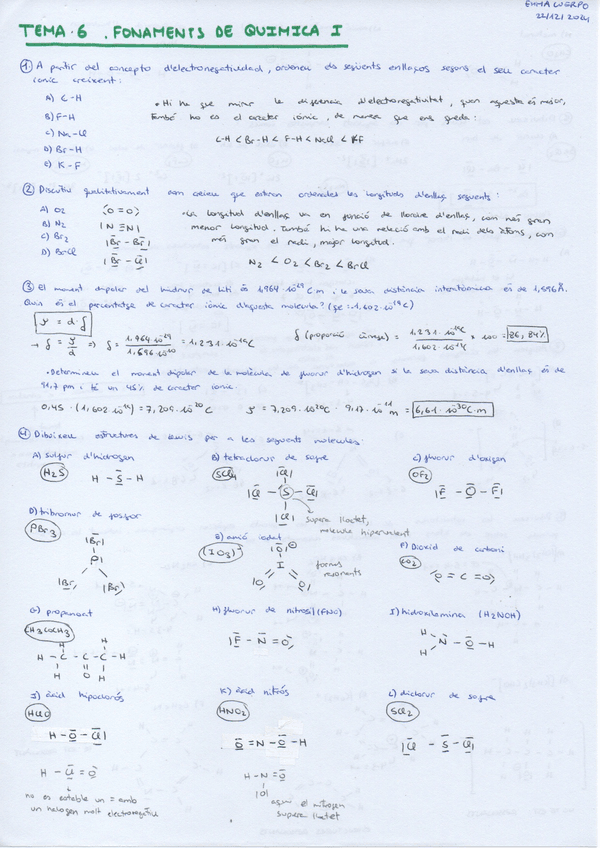 EMMA CUERPO
22/12/2024
TEMA 6. FONAMENTS DE QUIMICA I
① A partir del concepto d'electronegatividad, ordeneu els següents enllaços segons el seu caràcter
iònic creixent:
A) C-H
B) F-H
C) Na-Cl
D) Br-H
E) K-F
• Hi ha que mirar la diferència d'electronegativitat, quan aquesta és major,
també ho és el caràcter iònic, de manera que ens queda:
C-H < Br-H < F-H < NaCl < KF
② Discutiu qualitativament com creieu que estaran ordenades les longituds d'enllaç següents:
A) O2 ⟨O=O⟩
B) N2 |N≡N|
C) Br2 |Br-Br|
D) BrCl |Br-Cl|
• La longitud d'enllaç va en funció de l'ordre d'enllaç, com més gran
menor longitud. També hi ha una relació amb el radi dels àtoms, com
més gran el radi, major longitud.
N2 < O2 < Br2 < BrCl
③ El moment dipolar del hidrur de liti és 1,964·10⁻²⁹ C·m i la seva distància interatòmica és de 1,596Å.
Quin és el percentatge de caràcter iònic d'aquesta molècula? (qe = 1,602·10⁻¹⁹C)
μ = d·δ
→ δ = μ/d ⇒ δ = 1,964·10⁻²⁹/1,596·10⁻¹⁰ = 1,231·10⁻¹⁹C
δ (proporció càrrega) = 1,231·10⁻¹⁹C/1,602·10⁻¹⁹ × 100 = 76,84%
• Determineu el moment dipolar de la molècula de fluorur d'hidrogen si la seva distància d'enllaç és de
91,7 pm i té un 45% de caràcter iònic.
0,45 · (1,602·10⁻¹⁹) = 7,209·10⁻²⁰C μ = 7,209·10⁻²⁰C · 9,17·10⁻¹¹m = 6,61·10⁻³⁰C·m
④ Dibuixeu estructures de Lewis per a les següents molècules:
A) sulfur d'hidrogen
H2S H-S-H
B) tetraclorur de sofre
SCl4
|Cl|
|Cl-S-Cl|
|Cl|
supera l'octet,
molècula hipervalent
C) fluorur d'oxigen
OF2 |F-O-F|
D) tribromur de fosfor
PBr3
|Br|
P|
|Br| |Br|
E) anió iodat
(IO3)⁻
|O|⊖
I
|O O|
formes
resonants
F) Diòxid de carboni
CO2 ⟨O=C=O⟩
G) propanona
CH3COCH3
H H
H-C-C-C-H
H O H
H) fluorur de nitrosil (FNO)
|F-N=O⟩
I) hidroxilamina (H2NOH)
H
N-O-H
H
J) àcid hipoclorós
HClO
H-O-Cl|
H-Cl=O
no és estable un = amb
un halogen molt electronegatiu
K) àcid nitrós
HNO2
O=N-O-H
H-N=O
|O|
aquí el nitrogen
supera l'octet
L) diclorur de sofre
SCl2
|Cl-S-Cl|